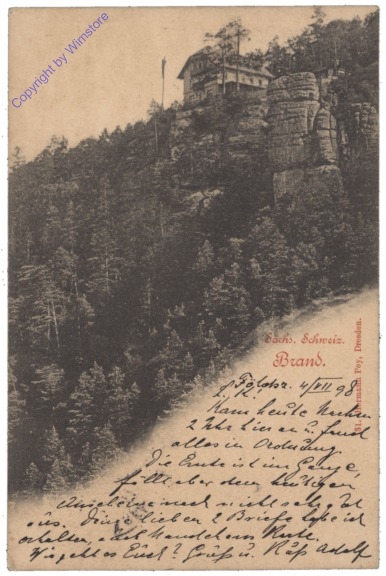 Copyright by Wimstore
Sächs. Schweiz.
Brand.
Hermann Poy, Dresden.
4/VII 98
Kam heute
2 Uhr hier an u. fand
alles in Ordnung
Die Ernte ist im Gange,
fällt aber dem heutigen
nach nicht sehr gut
aus. Deine lieben 2 Briefe habe ich
erhalten,
Wie geht es Euch? Gruß u. Kuß Adolf